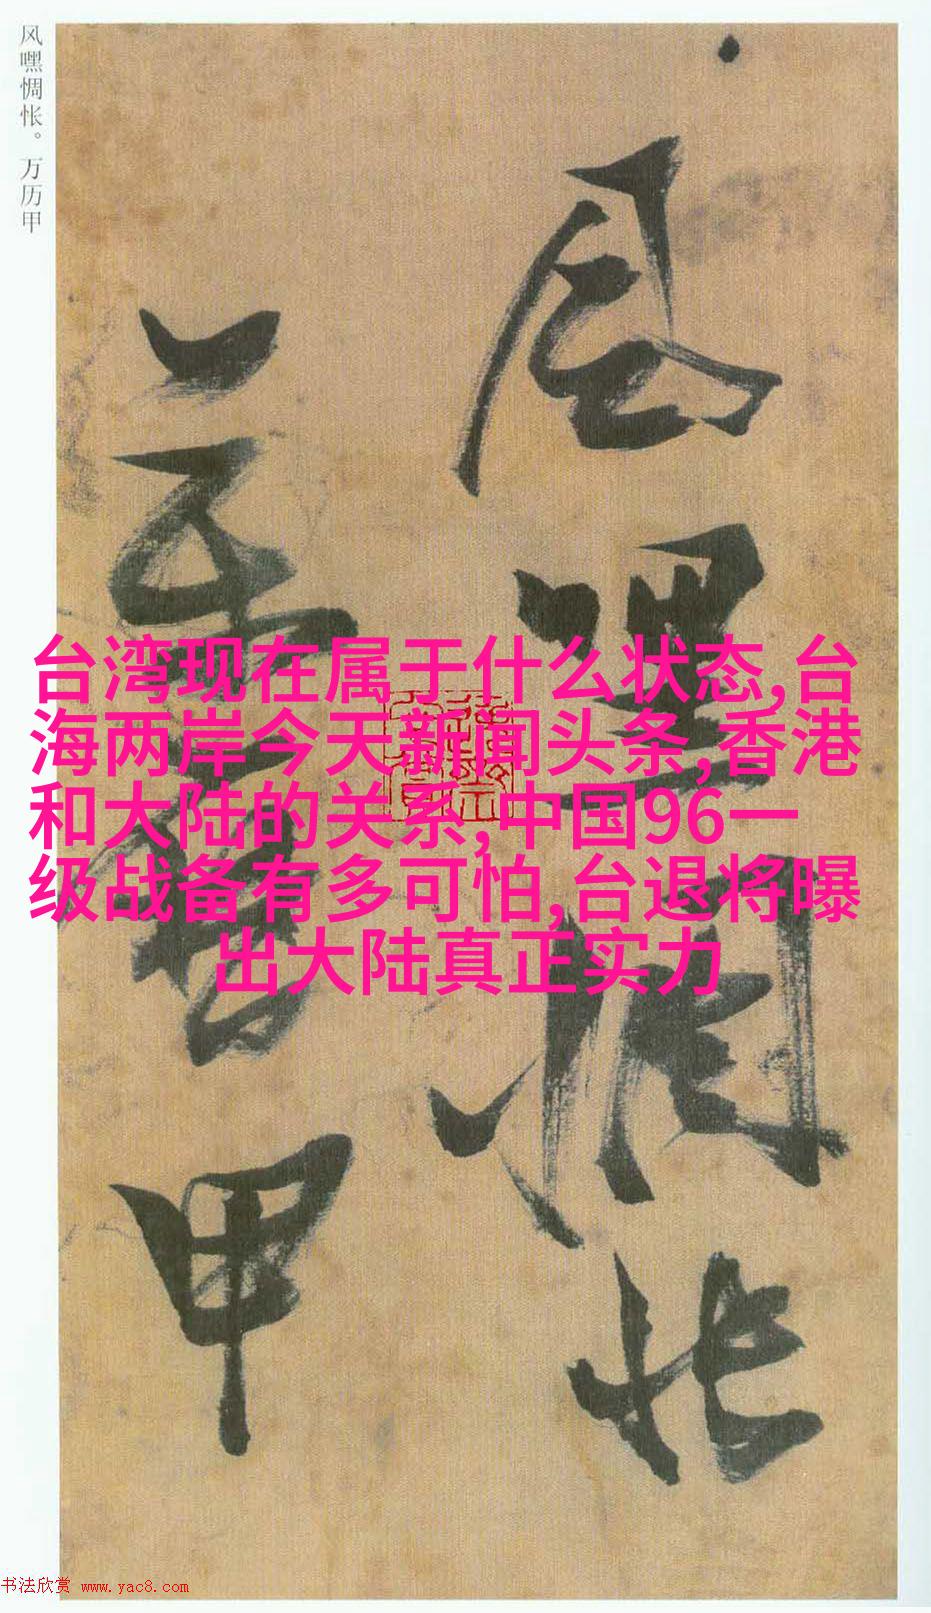 风嘿惆怅。万历甲
风嘿惆
怅
万历甲
台湾现在属于什么状态,台
海两岸今天新闻头条,香港
和大陆的关系,中国96一
级战备有多可怕,台退将曝
出大陆真正实力
书法欣赏 www.yac8.com